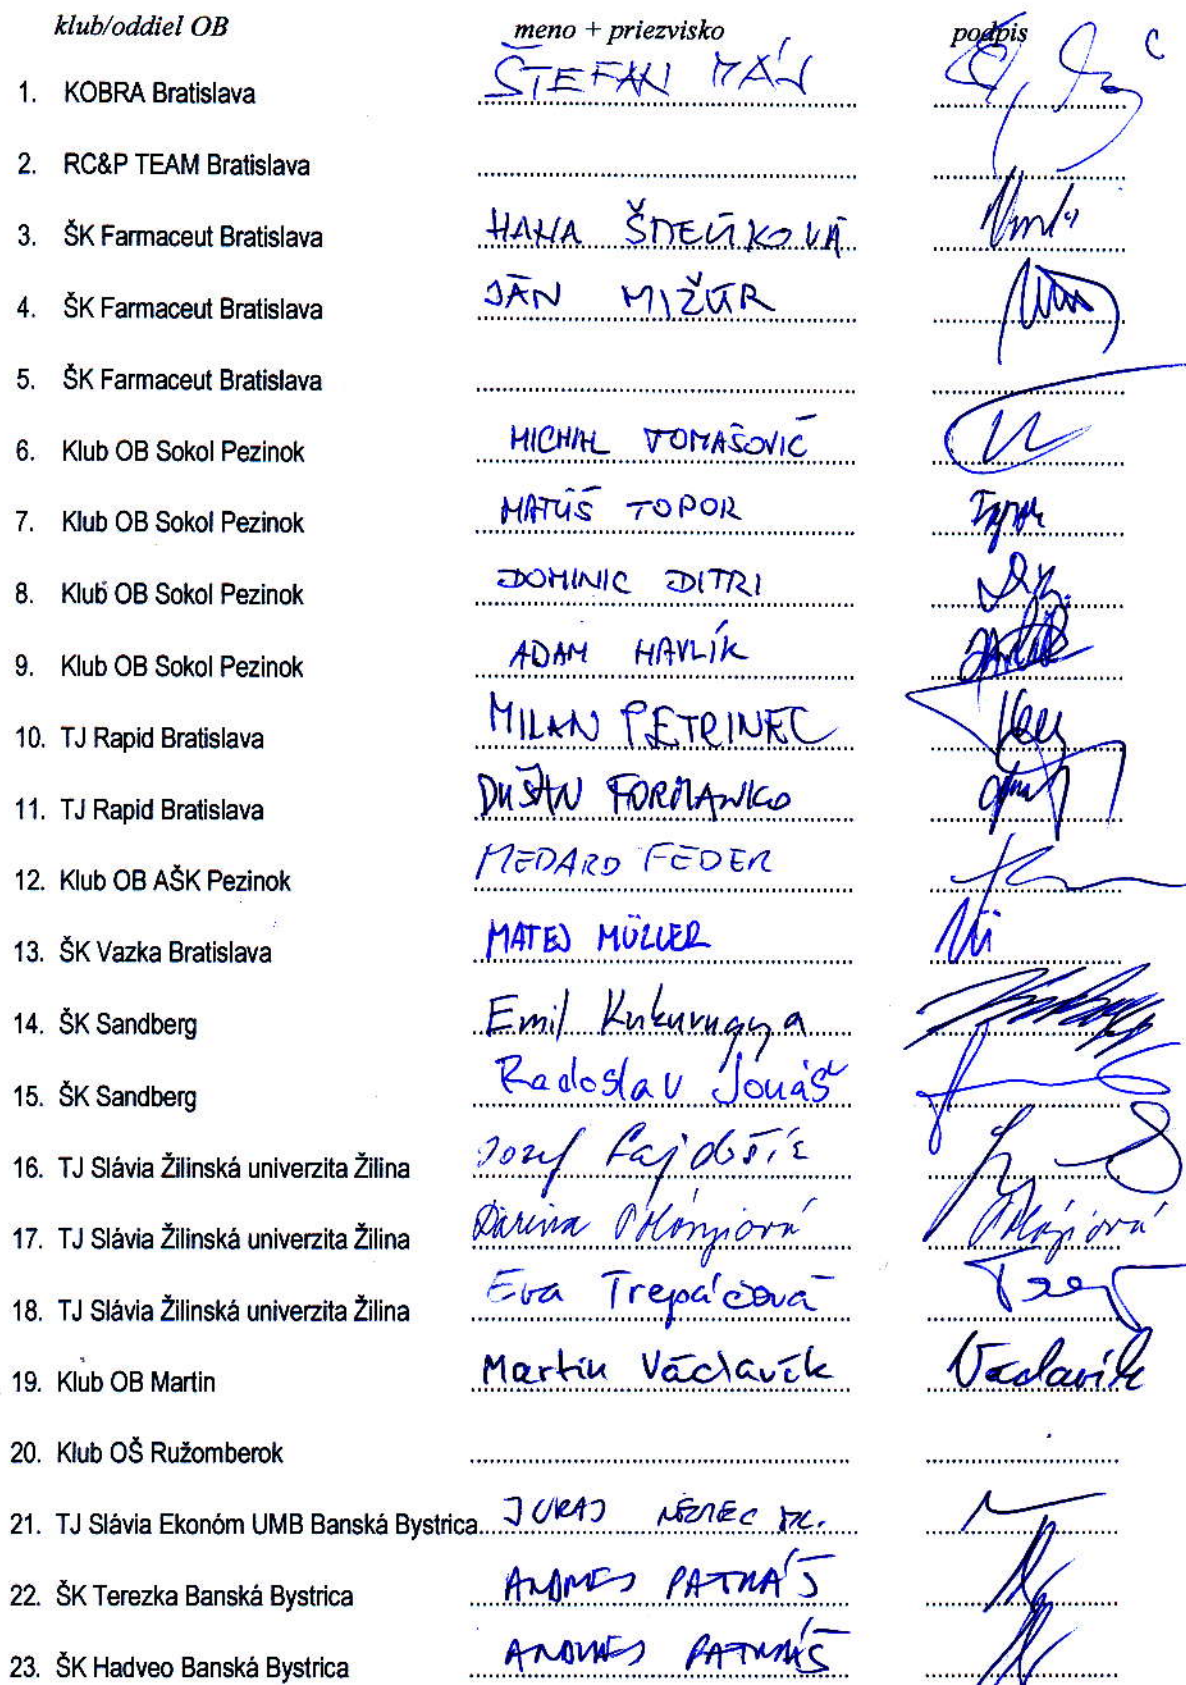 klub/oddiel OB meno + priezvisko podpis
1. KOBRA Bratislava ŠTEFAN MÁJ
2. RC&P TEAM Bratislava
3. ŠK Farmaceut Bratislava HANA
4. ŠK Farmaceut Bratislava JÁN MIŽÚR
5. ŠK Farmaceut Bratislava
6. Klub OB Sokol Pezinok MICHAL TOMAŠOVIČ
7. Klub OB Sokol Pezinok MATÚŠ TOPOR
8. Klub OB Sokol Pezinok DOMINIC DITRI
9. Klub OB Sokol Pezinok ADAM HAVLÍK
10. TJ Rapid Bratislava MILAN PETRINEC
11. TJ Rapid Bratislava DUŠAN FORMANKO
12. Klub OB AŠK Pezinok MEDARD FEDER
13. ŠK Vazka Bratislava MATEJ MÜLLER
14. ŠK Sandberg Emil Kukurugya
15. ŠK Sandberg Radoslav Jonáš
16. TJ Slávia Žilinská univerzita Žilina Jozef
17. TJ Slávia Žilinská univerzita Žilina Darina
18. TJ Slávia Žilinská univerzita Žilina Eva Trepáčová
19. Klub OB Martin Martin Václavík Václavík
20. Klub OŠ Ružomberok
21. TJ Slávia Ekonóm UMB Banská Bystrica JURAJ NEMEC ML.
22. ŠK Terezka Banská Bystrica ANDREJ PATRÁŠ
23. ŠK Hadveo Banská Bystrica ANDREJ PATRÁŠ